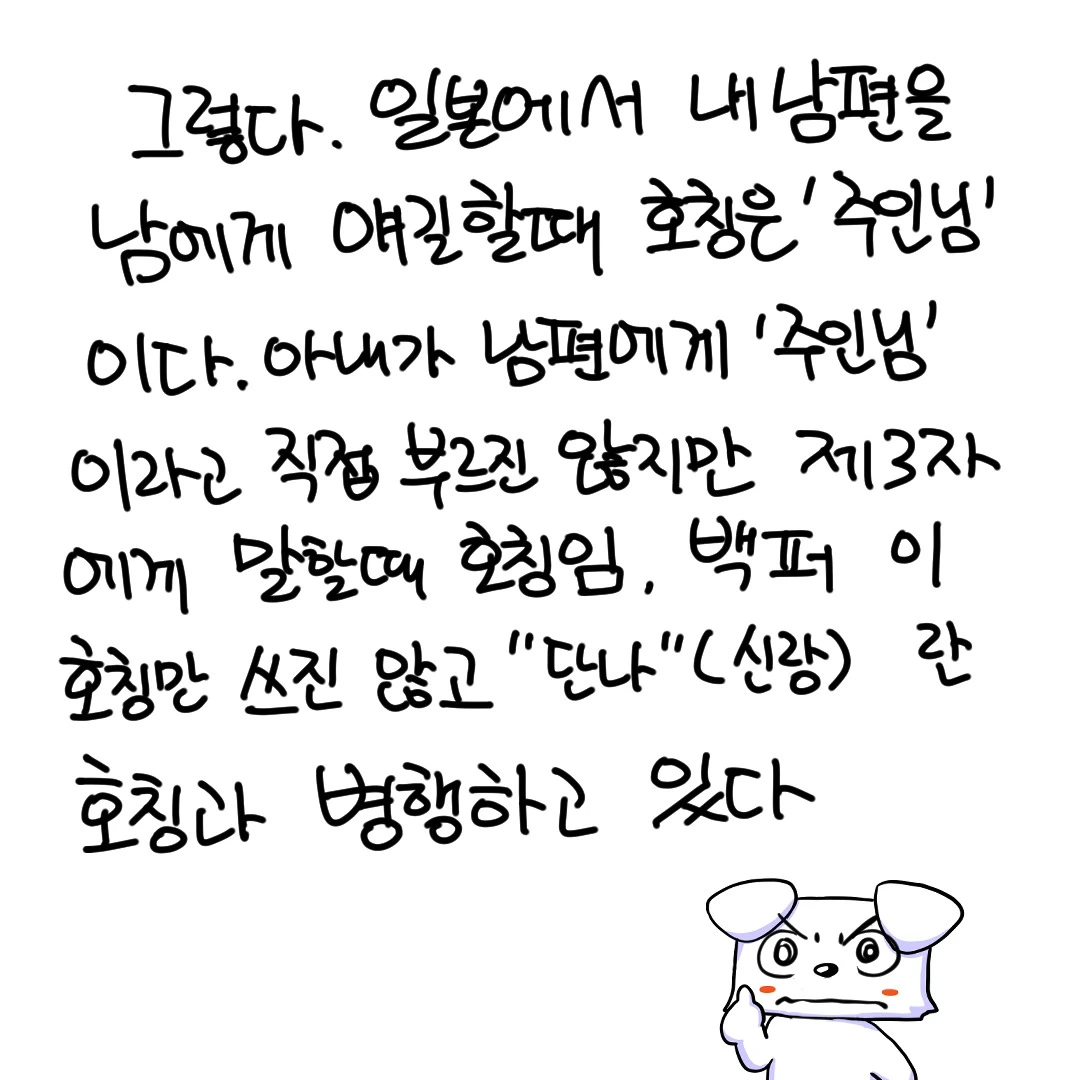 그렇다. 일본에서 내 남편을
남에게 얘길할때 호칭은 '주인님'
이다. 아내가 남편에게 '주인님'
이라고 직접 부르진 않지만 제3자
에게 말할때 호칭임. 백퍼 이
호칭만 쓰진 않고 "단나"(신랑) 란
호칭과 병행하고 있다